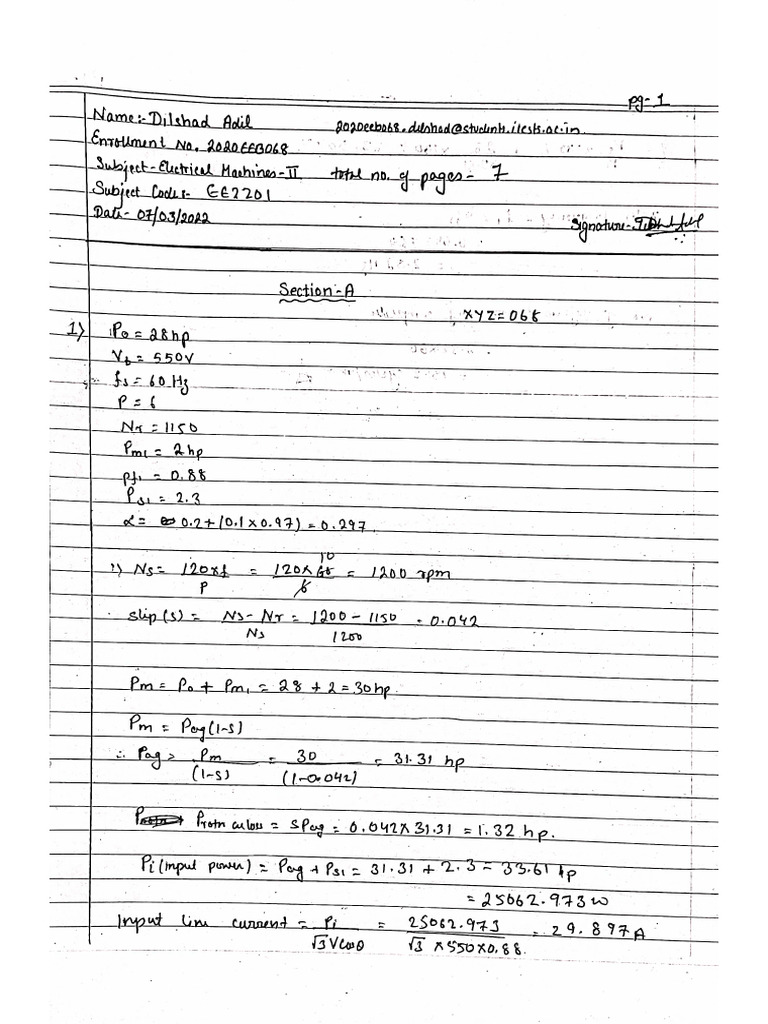 pg-1
Name:- Dilshad Adil 2020eeb068.dilshad@students.iiests.ac.in
Enrollment No. 2020EEB068
Subject - Electrical Machines-II total no. of pages - 7
Subject Code:- EE2201
Date - 07/03/2022 Signature -
Section-A
XYZ = 068
1) P₀ = 28hp
= 550V
fs = 60 Hz
P = 6
Nr = 1150
Pm₁ = 2hp
pf₁ = 0.88
Ps₁ = 2.3
α = 0.2 + (0.1 x 0.97) = 0.297
Ns = 120xf / P = 120 x / 6 = 1200 rpm
slip (s) = Ns - Nr / Ns = 1200 - 1150 / 1200 = 0.042
Pm = P₀ + Pm₁ = 28 + 2 = 30hp
Pm = Pag (1-s)
∴ Pag = Pm / (1-s) = 30 / (1-0.042) = 31.31 hp
= sPag = 0.042 x 31.31 = 1.32 hp.
Pi (input power) = Pag + Ps₁ = 31.31 + 2.3 = 33.61 hp
= 25062.973 w
Input line current = Pi / √3 V cosθ = 25062.973 / √3 x 550 x 0.88. = 29.897A